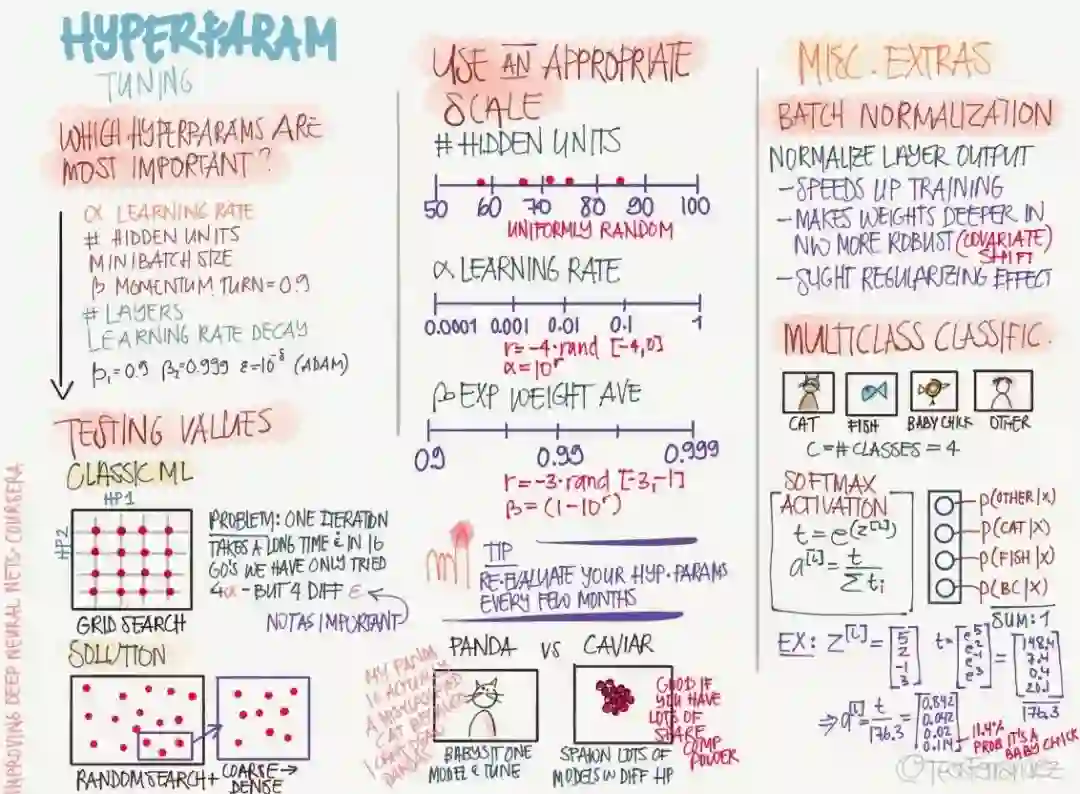 HYPERPARAM
TUNING
WHICH HYPERPARAMS ARE
MOST IMPORTANT?
α LEARNING RATE
# HIDDEN UNITS
MINIBATCH SIZE
β MOMENTUM TURN = 0.9
# LAYERS
LEARNING RATE DECAY
β₁=0.9 β₂=0.999 ε=10⁻⁸ (ADAM)
TESTING VALUES
CLASSIC ML
HP1
HP2
GRID SEARCH
PROBLEM: ONE ITERATION
TAKES A LONG TIME & IN 16
GO'S WE HAVE ONLY TRIED
4α - BUT 4 DIFF ε
NOT AS IMPORTANT
SOLUTION
RANDOM SEARCH +
COARSE →
DENSE
IMPROVING DEEP NEURAL NETS · COURSERA
USE AN APPROPRIATE
SCALE
# HIDDEN UNITS
50 60 70 80 90 100
UNIFORMLY RANDOM
α LEARNING RATE
0.0001 0.001 0.01 0.1 1
r=-4·rand [-4,0]
α=10ʳ
β EXP WEIGHT AVE
0.9 0.99 0.999
r=-3·rand [-3,-1]
β=(1-10ʳ)
TIP
RE-EVALUATE YOUR HYP.PARAMS
EVERY FEW MONTHS
PANDA VS CAVIAR
MY PANDA
IS ACTUALLY
A MISCLASSIFIED
CAT BECAUSE
I CAN'T DRAW
PANDAS
BABYSIT ONE
MODEL & TUNE
SPAWN LOTS OF
MODELS W DIFF HP
GOOD IF
YOU HAVE
LOTS OF
SPARE
COMP
POWER
MISC. EXTRAS
BATCH NORMALIZATION
NORMALIZE LAYER OUTPUT
- SPEEDS UP TRAINING
- MAKES WEIGHTS DEEPER IN
NW MORE ROBUST (COVARIATE)
SHIFT
- SLIGHT REGULARIZING EFFECT
MULTICLASS CLASSIFIC.
CAT FISH BABY CHICK OTHER
C = # CLASSES = 4
SOFTMAX
ACTIVATION
t = e^(z^[L])
a^[L] = t / Σ tᵢ
P(OTHER|X)
P(CAT|X)
P(FISH|X)
P(BC|X)
SUM: 1
EX: Z^[L] = [5 2 -1 3] t = [e⁵ e² e⁻¹ e³] = [148.4 7.4 0.4 20.1]
176.3
⇒ a^[L] = t / 176.3 = [0.842 0.042 0.02 0.114]
11.4%
PROB IT'S A
BABY CHICK